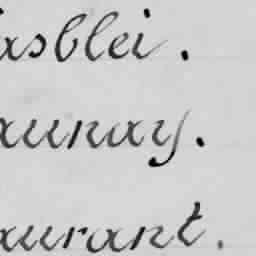 asblei.
aunay.
aurant.